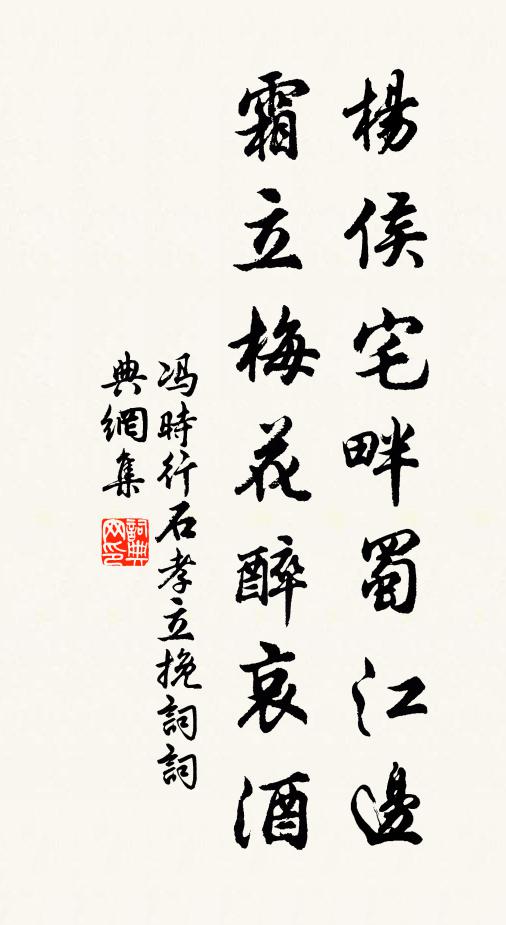 楊侯宅畔蜀江邊
霜立梅花醉哀酒
冯時行石孝立挽詞詞
典網集
詞典
网印